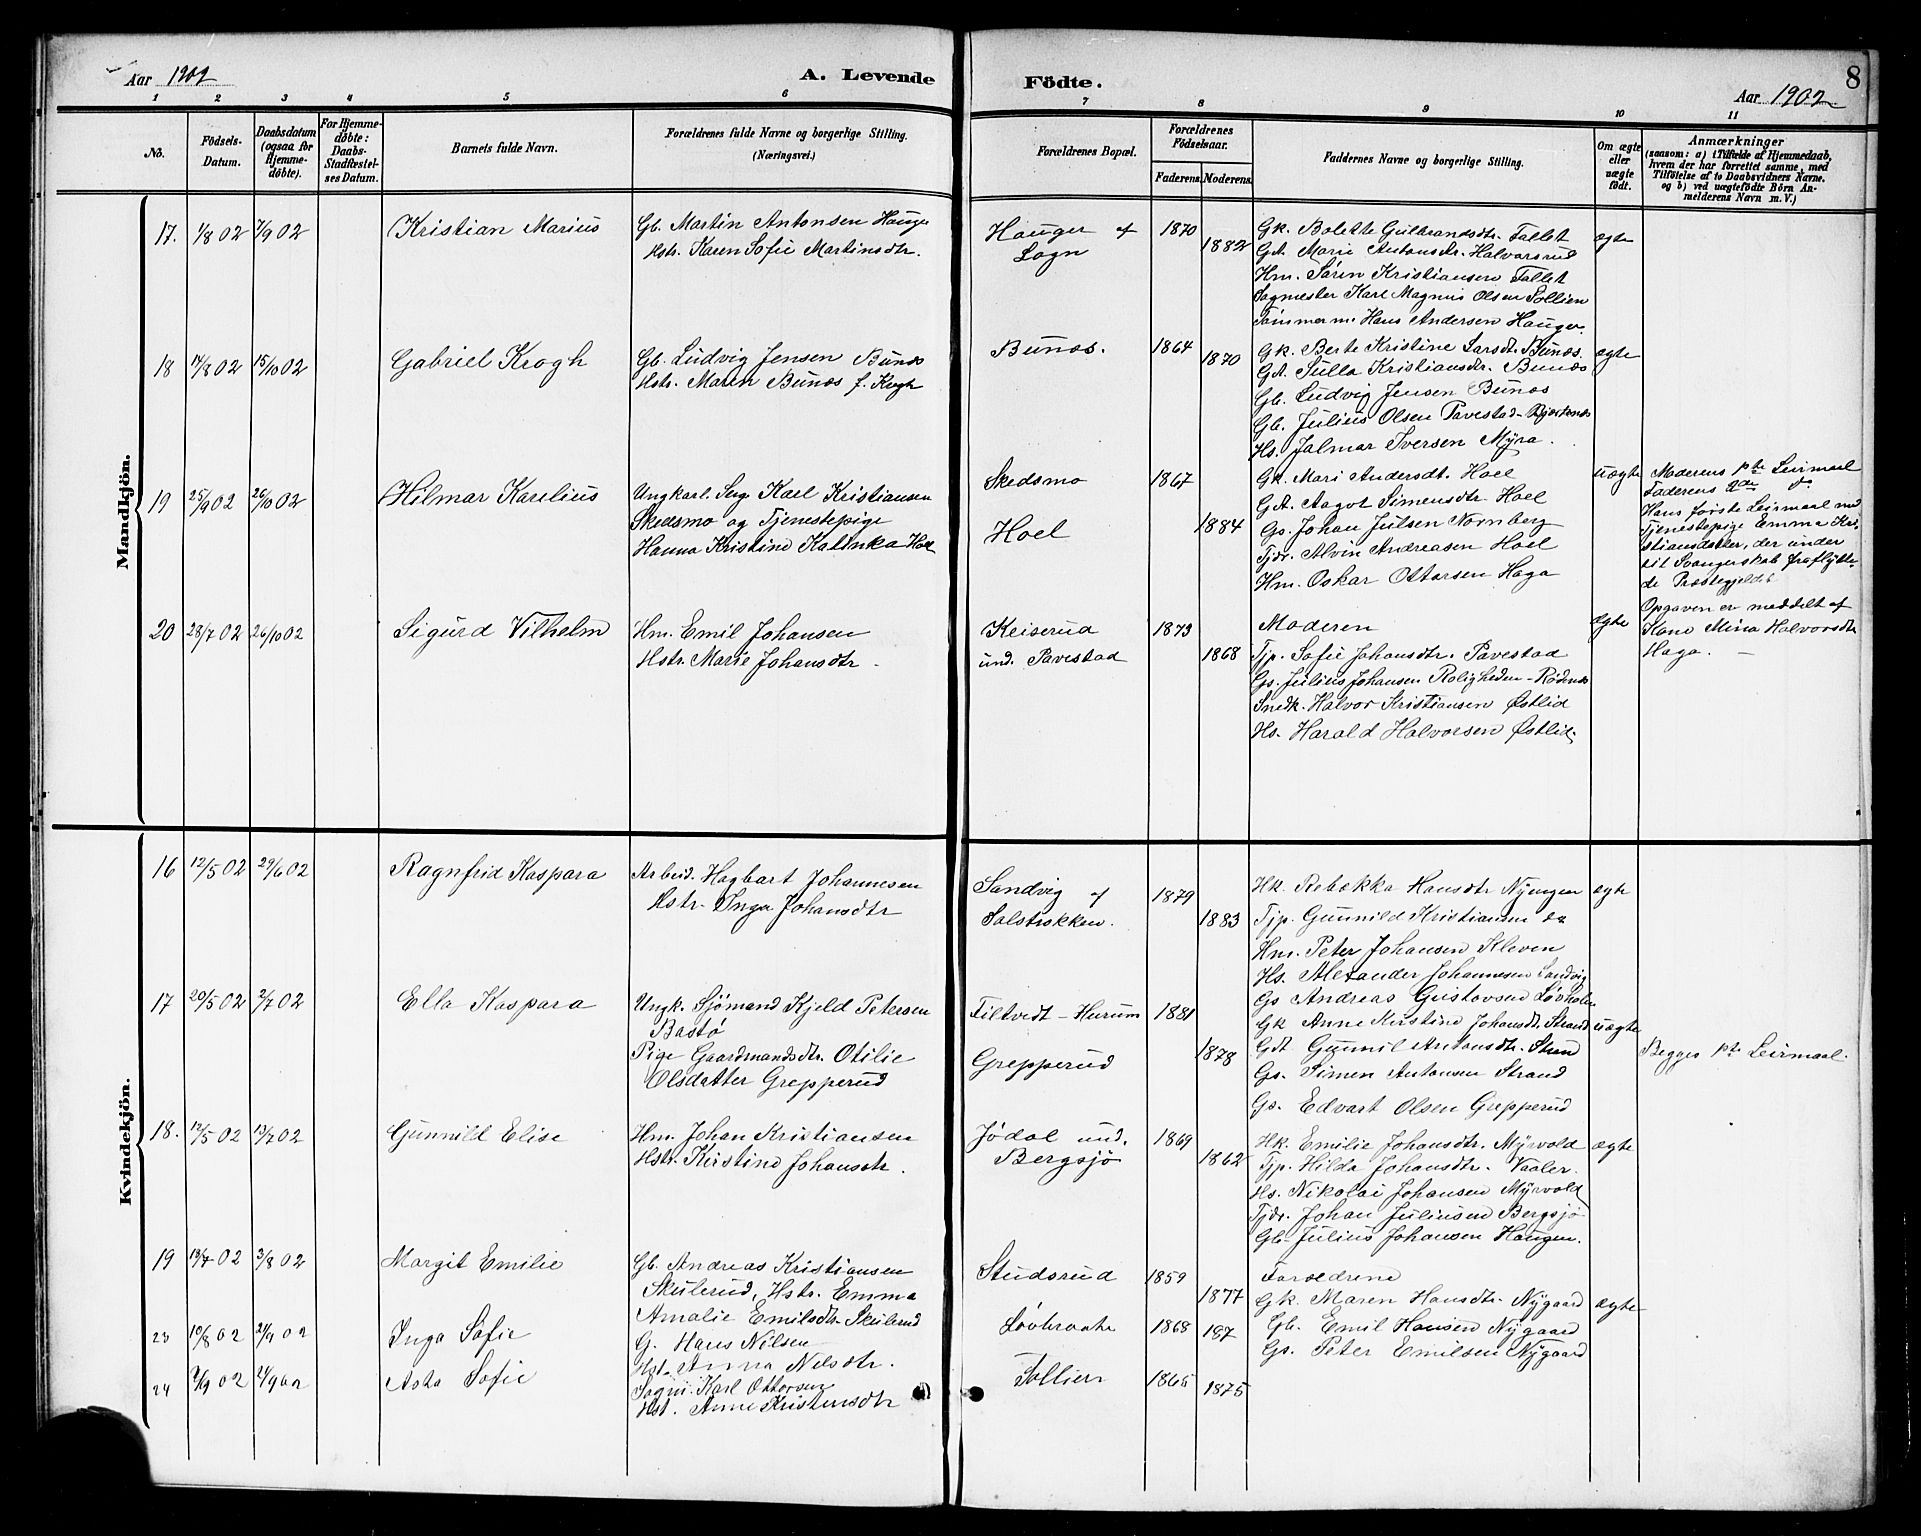 Aar 1902
A. Levende
Födte.
8
Aar 1902
1 2 3 4 5 6 7 8 9 10 11
No.
Födsels-
Datum.
Daabsdatum
(ogsaa for
Hjemme-
döbte).
For Hjemme-
döbte:
Daabs-
Stadfæstel-
ses Datum.
Barnets fulde Navn.
Forældrenes fulde Navne og borgerlige Stilling.
(Næringsvei.)
Forældrenes Bopæl.
Forældrenes
Födselsaar.
Faderens. Moderens.
Faddernes Navne og borgerlige Stilling.
Om ægte
eller
uægte
födt.
Anmærkninger
(saasom: a) i Tilfælde af Hjemmedaab,
hvem der har forrettet samme, med
Tilföielse af to Daabsvidners Navne.
og b) ved uægtefödte Börn An-
melderens Navn m.V.)
Mandkjön.
17. 1/8 02 7/9 02 Kristian Marius
Gb. Martin Antonsen Hauger
Hstr. Karen Sofie Martinsdtr.
Hauger af
Sogn
1870
1882
Gk. Bolette Gulbrandsdtr. Tallet
Gdt. Marie Antonsdtr. Halvorsrud
Hm. Søren Kristiansen Tallet
Sagmester Karl Magnus Olsen Sollien
Tømmerm. Hans Andersen Hauger.
ægte
18 14/8 02 15/10 02 Gabriel Krogh
Gb. Ludvig Jensen Bunæs
Hstr. Maren Bunæs f. Krogh
Bunæs.
1864
1870
Gk. Berte Kristine Larsdtr. Bunæs.
Gdt. Julla Kristiansdtr. Bunæs
Gb. Ludvig Jensen Bunæs
Gb. Julius Olsen Pavestad
Hs. Jalmar Iversen Myra.
ægte
19 25/9 02 26/10 02 Hilmar Karelius
Ungkarl. Serg. Karl Kristiansen
Skedsmo og Tjenestepige
Hanna Kristine Katinka Hoel
Skedsmo
Hoel
1867
1884
Gk. Mari Andersdt. Hoel
Gdt. Aagot Simensdtr. Hoel
Gs. Johan Julsen Nornberg
Tjdr. Alvin Andreasen Hoel
Hm. Oskar Ottersen Haga
uægte
Moderens 1ste Leirmaal
Faderens 2det do
Hans første Leirmaal med
Tjenestepige Emma Kri-
stiansdatter, der under
sit Svangerskab fraflytte-
de Præstegjeldet
20 28/7 02 26/10 02 Sigurd Vilhelm
Hm. Emil Johansen
Hstr. Marie Johansdtr.
Keiserud
und. Pavestad
1873
1868
Moderen
Tjp. Sofie Johansdtr. Pavestad
Gs. Julius Johansen Roligheden - Rødenes
Snedk. Halvor Kristiansen Østlid
Hs. Harald Halvorsen Østlid.
ægte
Opgaven er meddelt af
Kone Mina Halvorsdtr
Haga. —
Kvindekjön.
16 12/5 02 29/6 02 Ragnfrid Kaspara
Arbeid. Hagbart Johannesen
Hstr. Inga Johansdtr
Sandvig af
Solstrokken.
1879
1883
Hk. Rebekka Hansdtr Nyengen
Tjp. Gunnild Kristiansen do
Hm. Peter Johansen Kleven
Hs. Alexander Johannesen Sandvig
Gs Andreas Gustavsen Løvholen
ægte
17 20/5 02 2/7 02 Ella Kaspara
Ungk. Sjömand Kjeld Petersen
Bastø
Pige Gaardmandsdtr. Otilie
Olsdatter Grepperud
Filtvedt - Hurum
Grepperud
1881
1878
Gk Anne Kirstine Johansdtr. Strand
Gdt Gunnil Antonsdtr. Strand
Gs. Simen Antonsen Strand
Gs. Edvart Olsen Grepperud
uægte
Begges 1ste Leirmaal.
18. 12/5 02 13/7 02 Gunnild Elise
Hm. Johan Kristiansen
Hstr. Kirstine Johansdtr.
Jödal und.
Bergsjö
1869
1862
Hk. Emilie Johansdtr. Myrvold
Tjp. Hilda Johansdtr. Vaaler.
Hs. Nikolai Johansen Myrvold
Tjdr. Johan Juliusen Bergsjö
Gb. Julius Johansen Haugen.
ægte
19 13/7 02 3/8 02 Margit Emilie
Gb. Andreas Kristiansen
Skulerud, Hstr. Emma
Amalie Emilsdtr. Skulerud
Studsrud
1859
1877
Forældrene
Gk. Maren Hansdtr. Nygaard
Gb. Emil Hansen Nygaard
Gs. Peter Emilsen Nygaard
ægte
23 10/8 02 21/9 02 Inga Sofie
G. Hans Nilsen
Hst. Anna Nilsdtr.
Løvbraate
1868 187
24 9/9 02 21/9 02 Asta Sofie
Sagm. Karl Ottersen
Hst. Anne Kristensdtr
Tollien
1865
1875